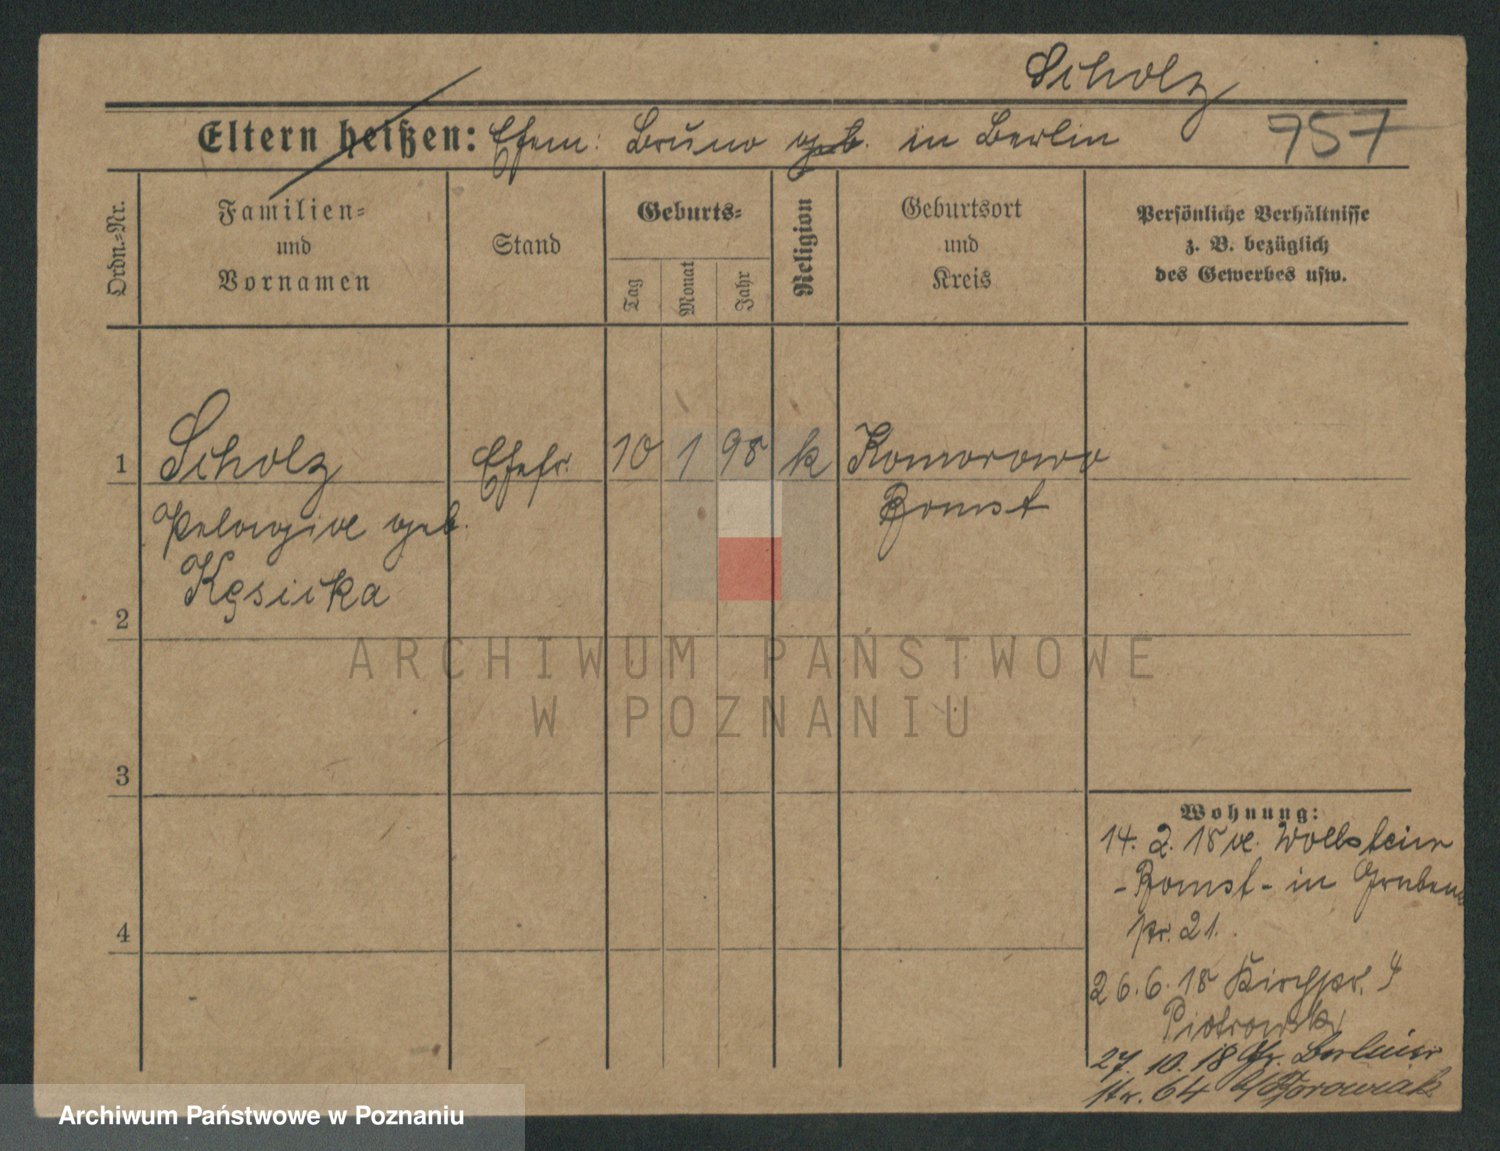 Scholz
Eltern heißen: Ehem: Bruno geb. in Berlin
957
Ordn.-Nr.
Familien-
und
Vornamen
Stand
Geburts-
Tag
Monat
Jahr
Religion
Geburtsort
und
Kreis
Persönliche Verhältnisse
z. B. bezüglich
des Gewerbes usw.
1 Scholz Ehefr. 10 1 98 k Komorowo
Bomst
Pelagia geb.
Kęsicka
2
ARCHIWUM PAŃSTWOWE
W POZNANIU
3
4
Wohnung:
14. 2. 18 a. Wollstein
- Bomst - in Graben
str. 21.
26. 6. 18 Kirchstr. 4
Piotrowski
27. 10. 18 Gr. Berliner
str. 64 b/
Archiwum Państwowe w Poznaniu